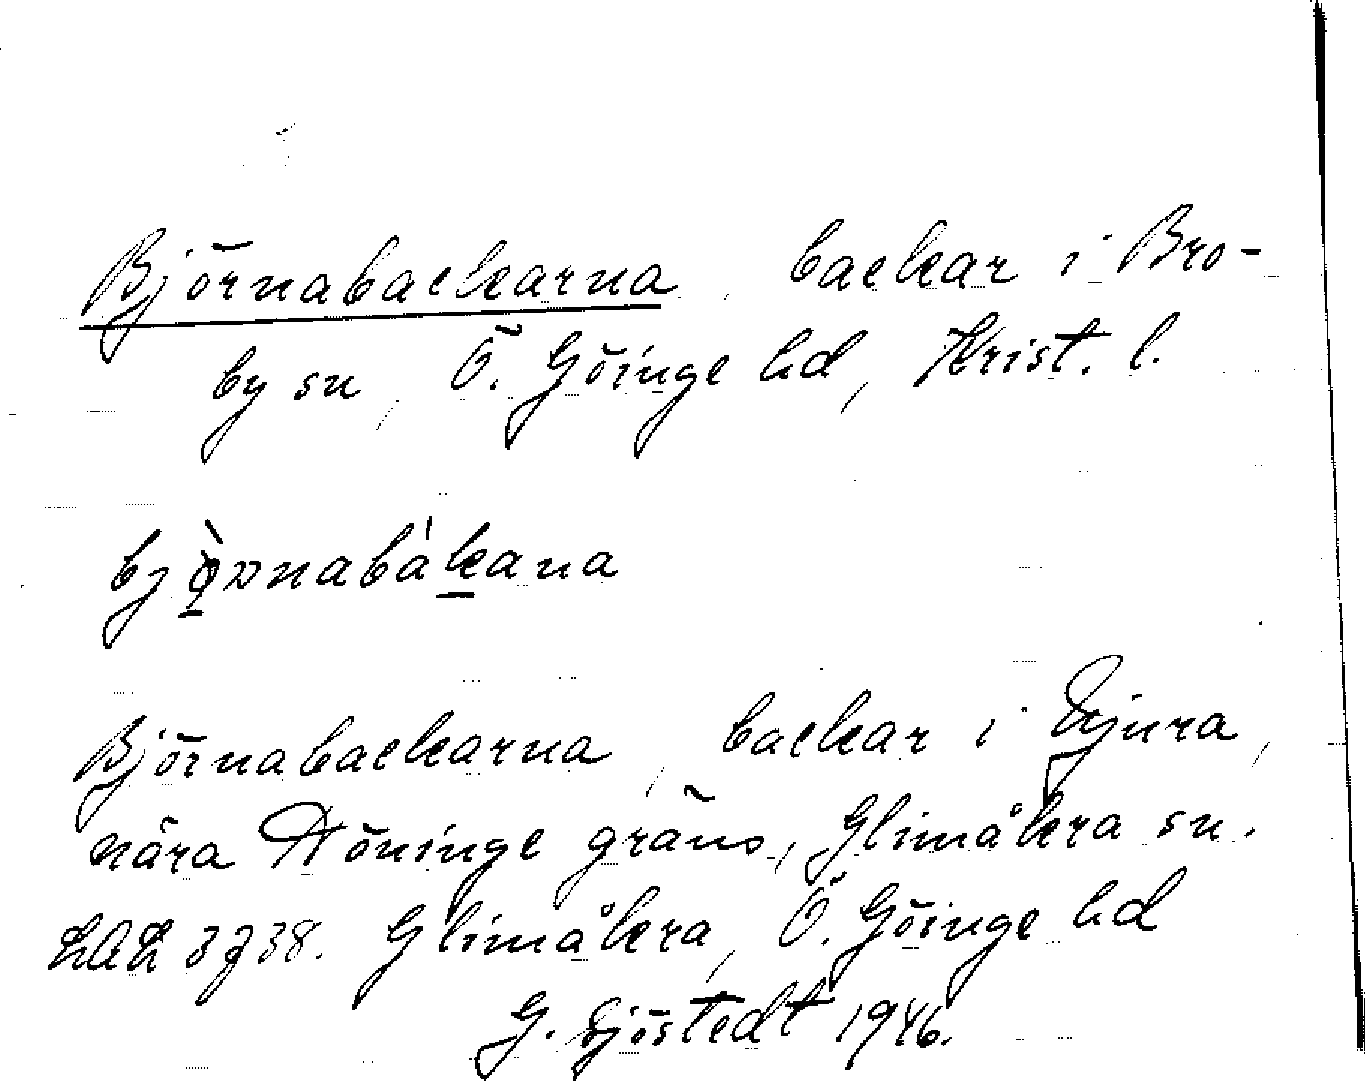 Björnabackarna, backar i Bro-
by sn, Ö. Göinge hd, Krist. l.
Björnabackarna, backar i Djura,
nära Höninge gräns, Glimåkra sn.
LAL 3738. Glimåkra, Ö. Göinge hd
G. Sjöstedt 1946.